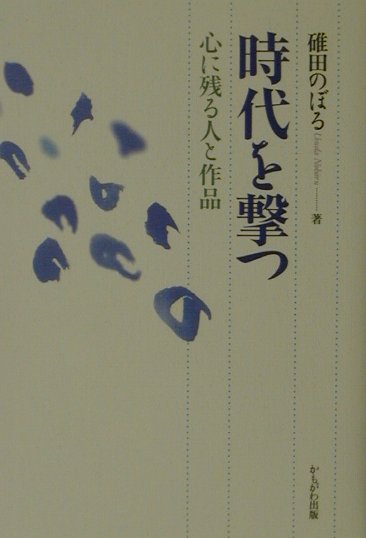 碓田のぼる Usuda Noboru 著
時代を撃つ
心に残る人と作品
かもがわ出版